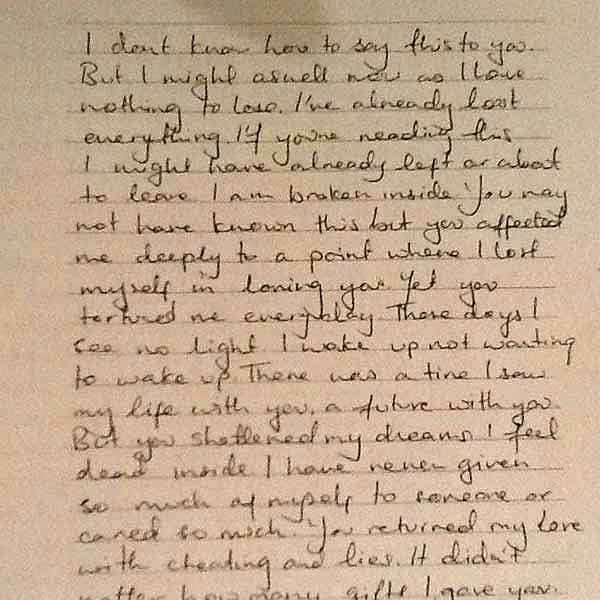 I dont know how to say this to you.
But I might aswell now as I have
nothing to lose. I've already lost
everything. If you're reading this
I might have already left or about
to leave I am broken inside. You may
not have known this but you affected
me deeply to a point where I lost
myself in loving you. Yet you
tortured me everyday These days I
see no light I wake up not wanting
to wake up. There was a time I saw
my life with you, a future with you
But you shattered my dreams. I feel
dead inside I have never given
so much of myself to someone or
cared so much. You returned my love
with cheating and lies. It didn't
matter how many gifts I gave you.